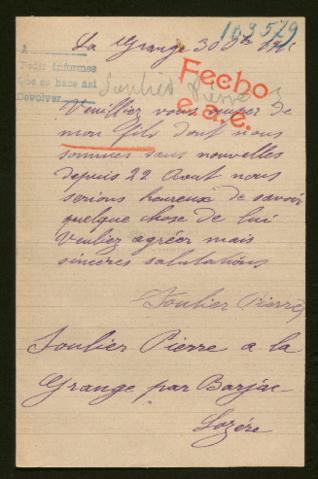 109579
La Grange 30
A
Pedir informes
Que se hace asi
Devolver
Fecho
e.a.e.
Soulier Pierre
Veuilliez vous ocuper de
mon fils dont nous
sommes sans nouvelles
depuis 22 Aout nous
serions heureux de savoir
quelque chose de lui
Veuliez agréer mais
sincères salutations
Soulier Pierre
Soulier Pierre a la
Grange par Barjac
Lozére